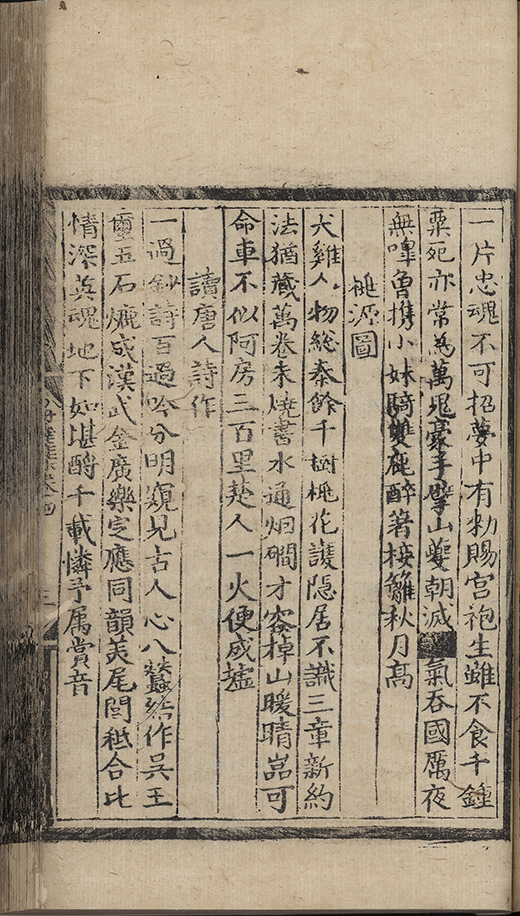 一片忠魂不可招夢中有勑賜宮袍生雖不食千鍾
粟死亦常為萬鬼豪手擘山夔朝滅氣吞國厲夜
無嘷攜小妹騎雙鹿醉著接秋月高
桃源圖
犬雞人物總秦餘千樹桃花護隱居不識三章新約
法猶藏萬卷未燒書水通烟磵才容棹山暖晴畬可
命車不似阿房三百里楚人一火便成墟
讀唐人詩作
一過鈔詩百過吟分明窺見古人心八蠶作吳王
五石爐成漢武金廣樂定應同韻美尾閭秪合比
情深英魂地下如堪酹千載憐予属賞音
丹崖集卷四
三